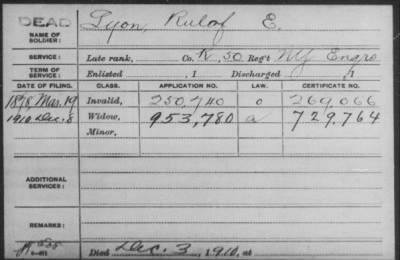 DEAD
NAME OF SOLDIER: Lyon, Rulof E.
SERVICE: Late rank, Co. K, 50 Reg't NY Engrs
TERM OF SERVICE: Enlisted , 1 Discharged , 1
DATE OF FILING. CLASS. APPLICATION NO. LAW. CERTIFICATE NO.
1878 Mar. 19 Invalid, 250,740 269,066
1910 Dec. 8 Widow, 953,780 a 729,764
Minor,
ADDITIONAL SERVICES:
REMARKS:
Died Dec. 3, 1910, at